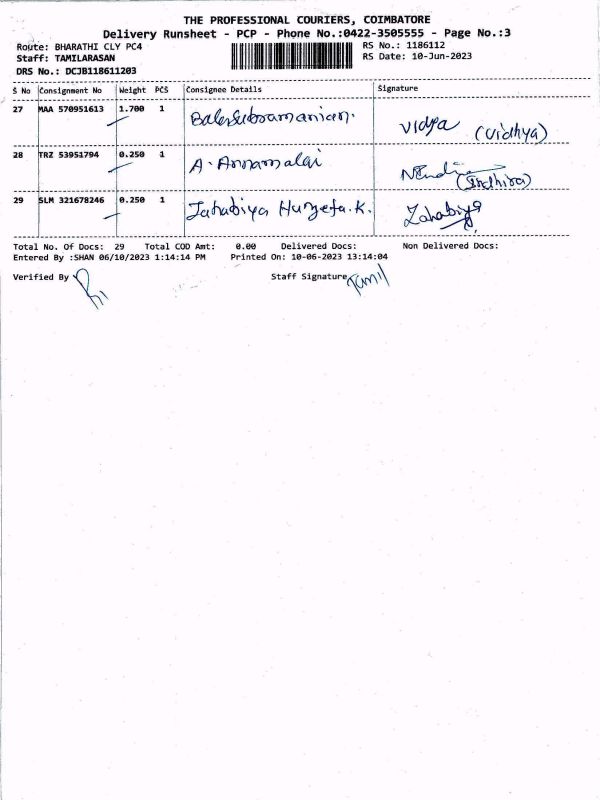 THE PROFESSIONAL COURIERS, COIMBATORE
Delivery Runsheet - PCP - Phone No.:0422-3505555 - Page No.:3
Route: BHARATHI CLY PC4 RS No.: 1186112
Staff: TAMILARASAN RS Date: 10-Jun-2023
DRS No.: DCJB118611203
S No Consignment No Weight PCS Consignee Details Signature
27 MAA 570951613 1.700 1 Balasubramanian. Vidya (Vidhya)
28 TRZ 53951794 0.250 1 A. Annamalai (Indhira)
29 SLM 321678246 0.250 1 Jahabiya Huzefa.K. Zahabiya
Total No. Of Docs: 29 Total COD Amt: 0.00 Delivered Docs: Non Delivered Docs:
Entered By :SHAN 06/10/2023 1:14:14 PM Printed On: 10-06-2023 13:14:04
Verified By Staff Signature Tamil